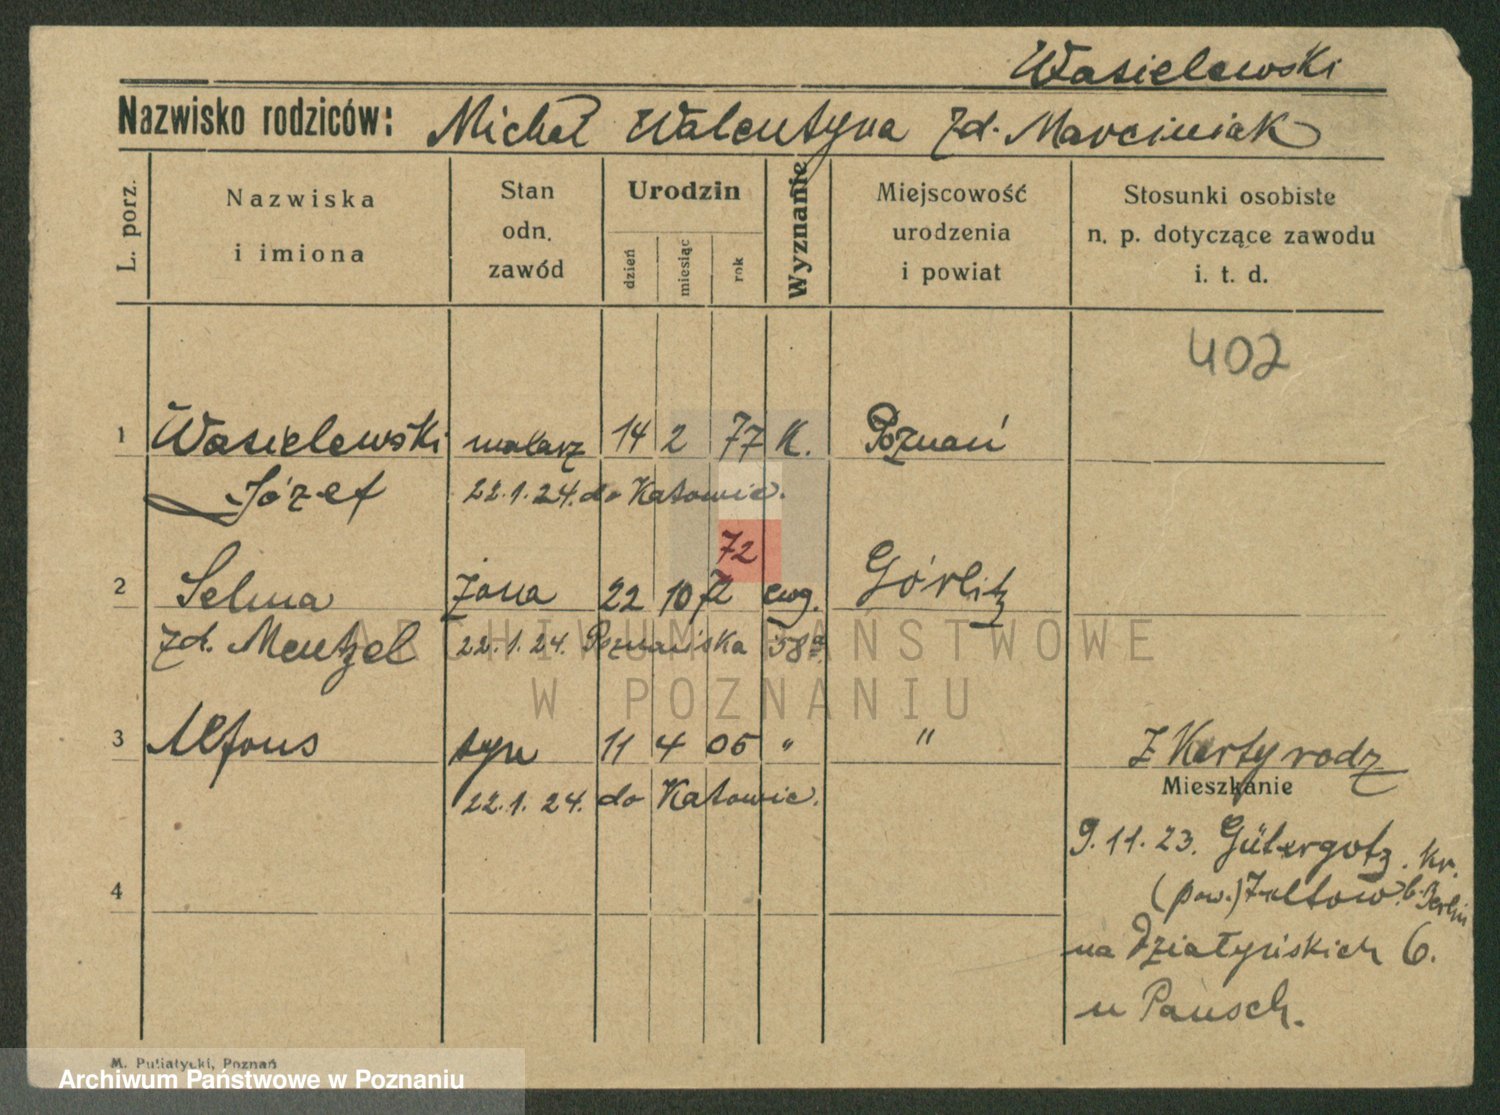 Wasielewski
Nazwisko rodziców: Michał Walentyna zd. Marciniak
L. porz.
Nazwiska i imiona
Stan odn. zawód
Urodzin
dzień miesiąc rok
Wyznanie
Miejscowość urodzenia i powiat
Stosunki osobiste n. p. dotyczące zawodu i. t. d.
402
1 Wasielewski malarz 14 2 77 K. Poznań
Józef 22.1.24. do Katowic.
72
2 Selma żona 22 10 72 ewg. Görlitz
zd. Mentzel 22.1.24. Poznańska 58a
ARCHIWUM PAŃSTWOWE
W POZNANIU
3 Alfons syn 11 4 05 " "
Z Karty rodz
22.1.24. do Katowic.
Mieszkanie
9.11.23. Gütergotz. Kr.
(pow.) b. Berlin
4
na Działyńskich 6.
u Pausch.
M. Putiatycki, Poznań
Archiwum Państwowe w Poznaniu